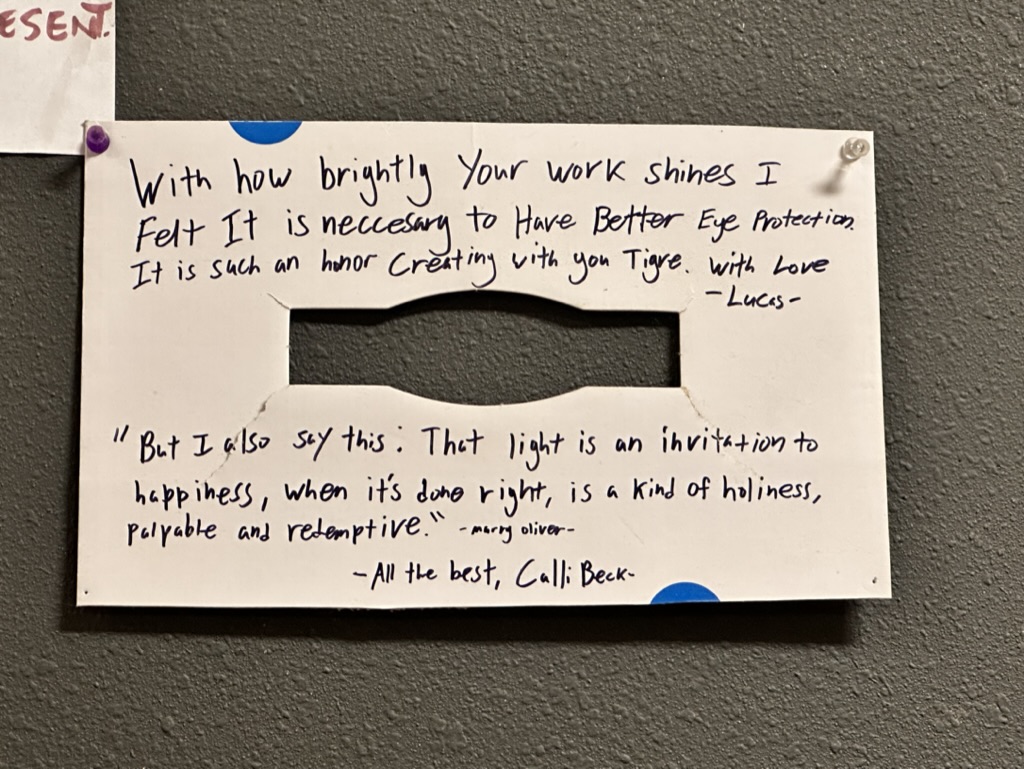 ESENT.
With how brightly Your work shines I
Felt It is neccesary to Have Better Eye Protection.
It is such an honor Creating with you Tigre. With Love
-Lucas-
"But I also say this: That light is an invitation to
happiness, when it's done right, is a kind of holiness,
palpable and redemptive." -marry oliver-
-All the best, Calli Beck-